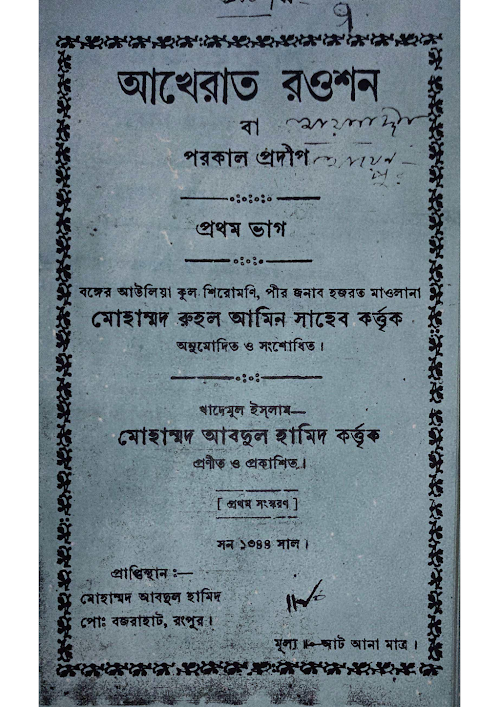 আখেরাত রওশন
বা
পরকাল প্রদীপ
প্রথম ভাগ
বঙ্গের আউলিয়া কুল শিরোমণি, পীর জনাব হজরত মাওলানা
মোহাম্মদ রুহল আমিন সাহেব কর্ত্তৃক
অনুমোদিত ও সংশোধিত।
খাদেমুল ইস্‌লাম—
মোহাম্মদ আবদুল হামিদ কর্ত্তৃক
প্রণীত ও প্রকাশিত।
[ প্রথম সংস্করণ ]
সন ১৩৪৪ সাল।
প্রাপ্তিস্থান :—
মোহাম্মদ আবদুল হামিদ
পোঃ বজরাহাট, রংপুর।
মূল্য ॥০ আট আনা মাত্র।